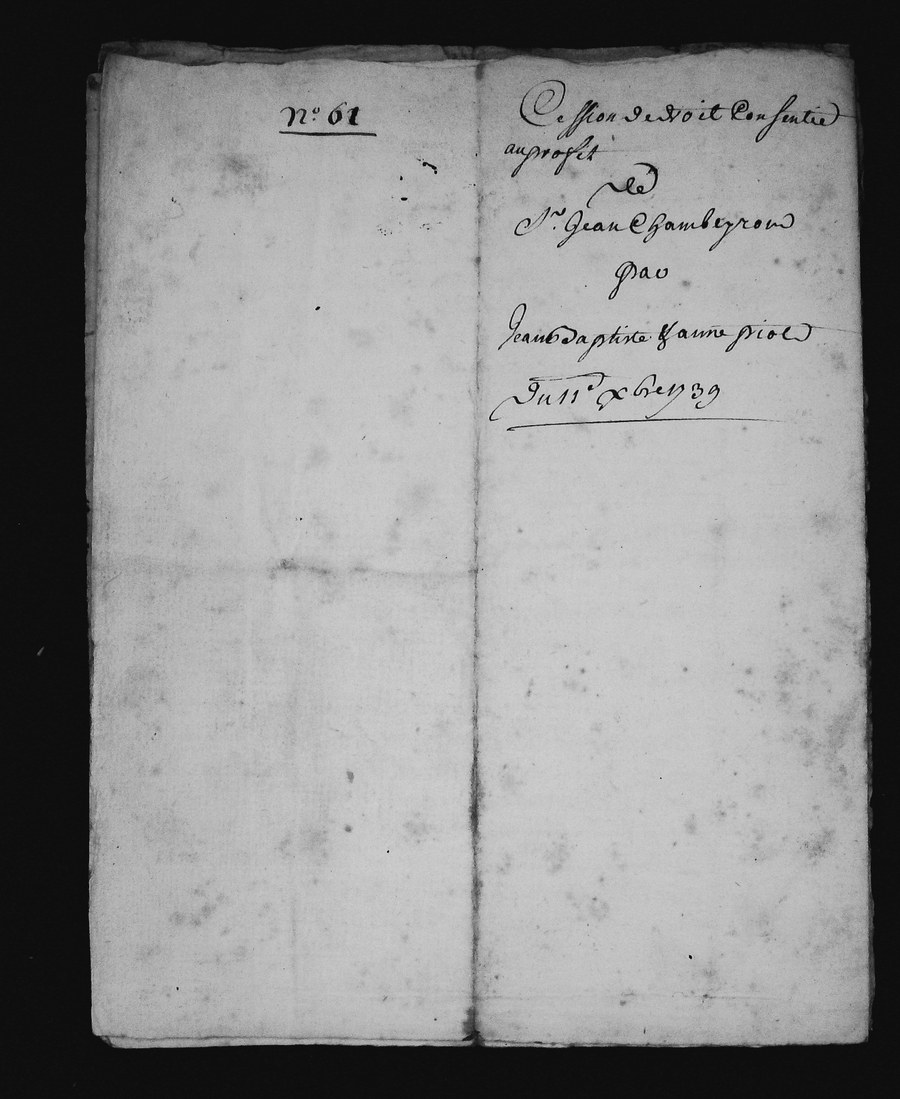 N.° 61
Cession de droit Consentie
au profit
De
Sr. Jean Chambeyron
par
Jean Baptiste & anne piot
Du 11e xbre 1739